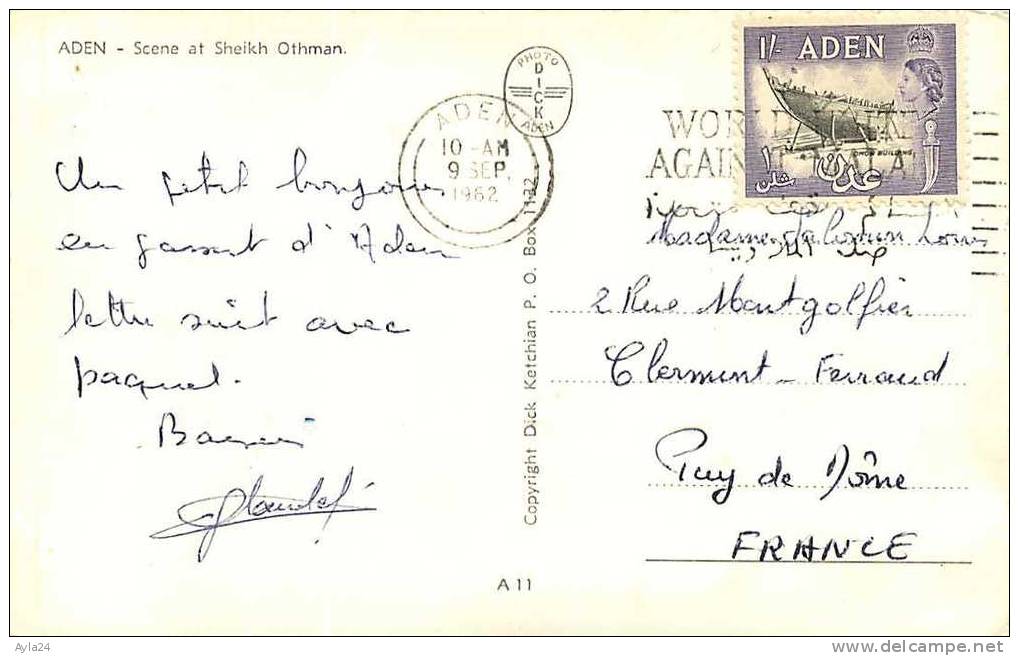 ADEN - Scene at Sheikh Othman.
PHOTO
DICK
ADEN
ADEN
10 - AM
9 SEP.
1962
1/- ADEN
DHOW BUILDING
عدن
شلن
WORLD
AGAIN
Un petit bonjour
en passant d'Aden
lettre suit avec
paquet.
Copyright Dick Ketchian P. O. Box 1132
Madame
2 Rue Montgolfier
Clermont-Ferrand
Puy de Dôme
FRANCE
A 11
Ayla24
www.delcampe.net